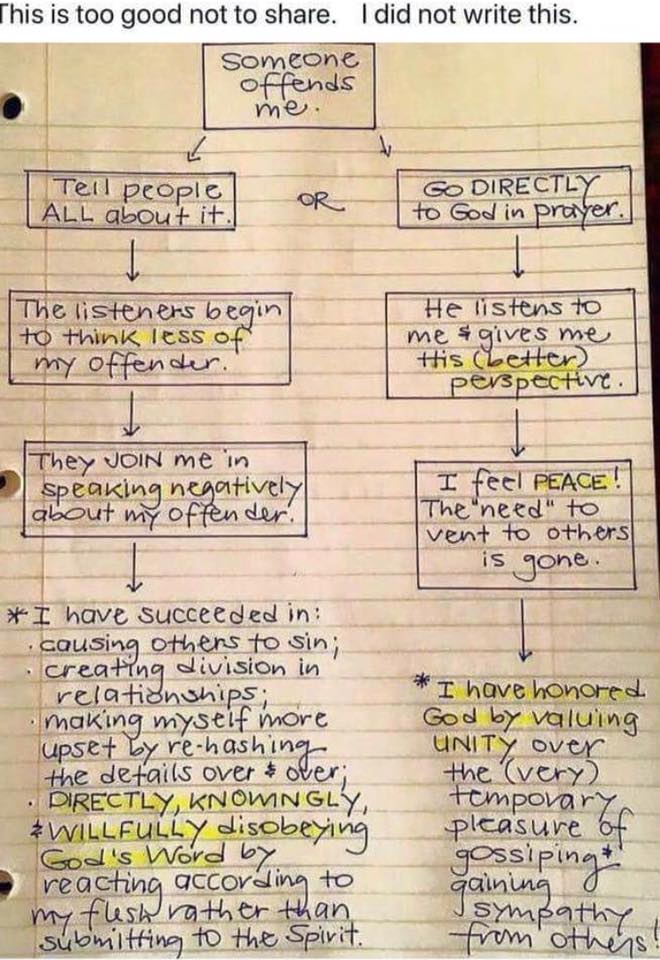 This is too good not to share. I did not write this.
Someone
offends
me.
Tell people
ALL about it.
OR
GO DIRECTLY
to God in prayer.
The listeners begin
to think less of
my offender.
He listens to
me & gives me
His (better)
perspective.
They JOIN me in
speaking negatively
about my offender.
I feel PEACE!
The "need" to
vent to others
is gone.
* I have succeeded in:
· causing others to sin;
· creating division in
relationships;
· making myself more
upset by re-hashing
the details over & over;
· DIRECTLY, KNOWINGLY,
& WILLFULLY disobeying
God's Word by
reacting according to
my flesh rather than
submitting to the Spirit.
* I have honored
God by valuing
UNITY over
the (very)
temporary
pleasure of
gossiping &
gaining
sympathy
from others!